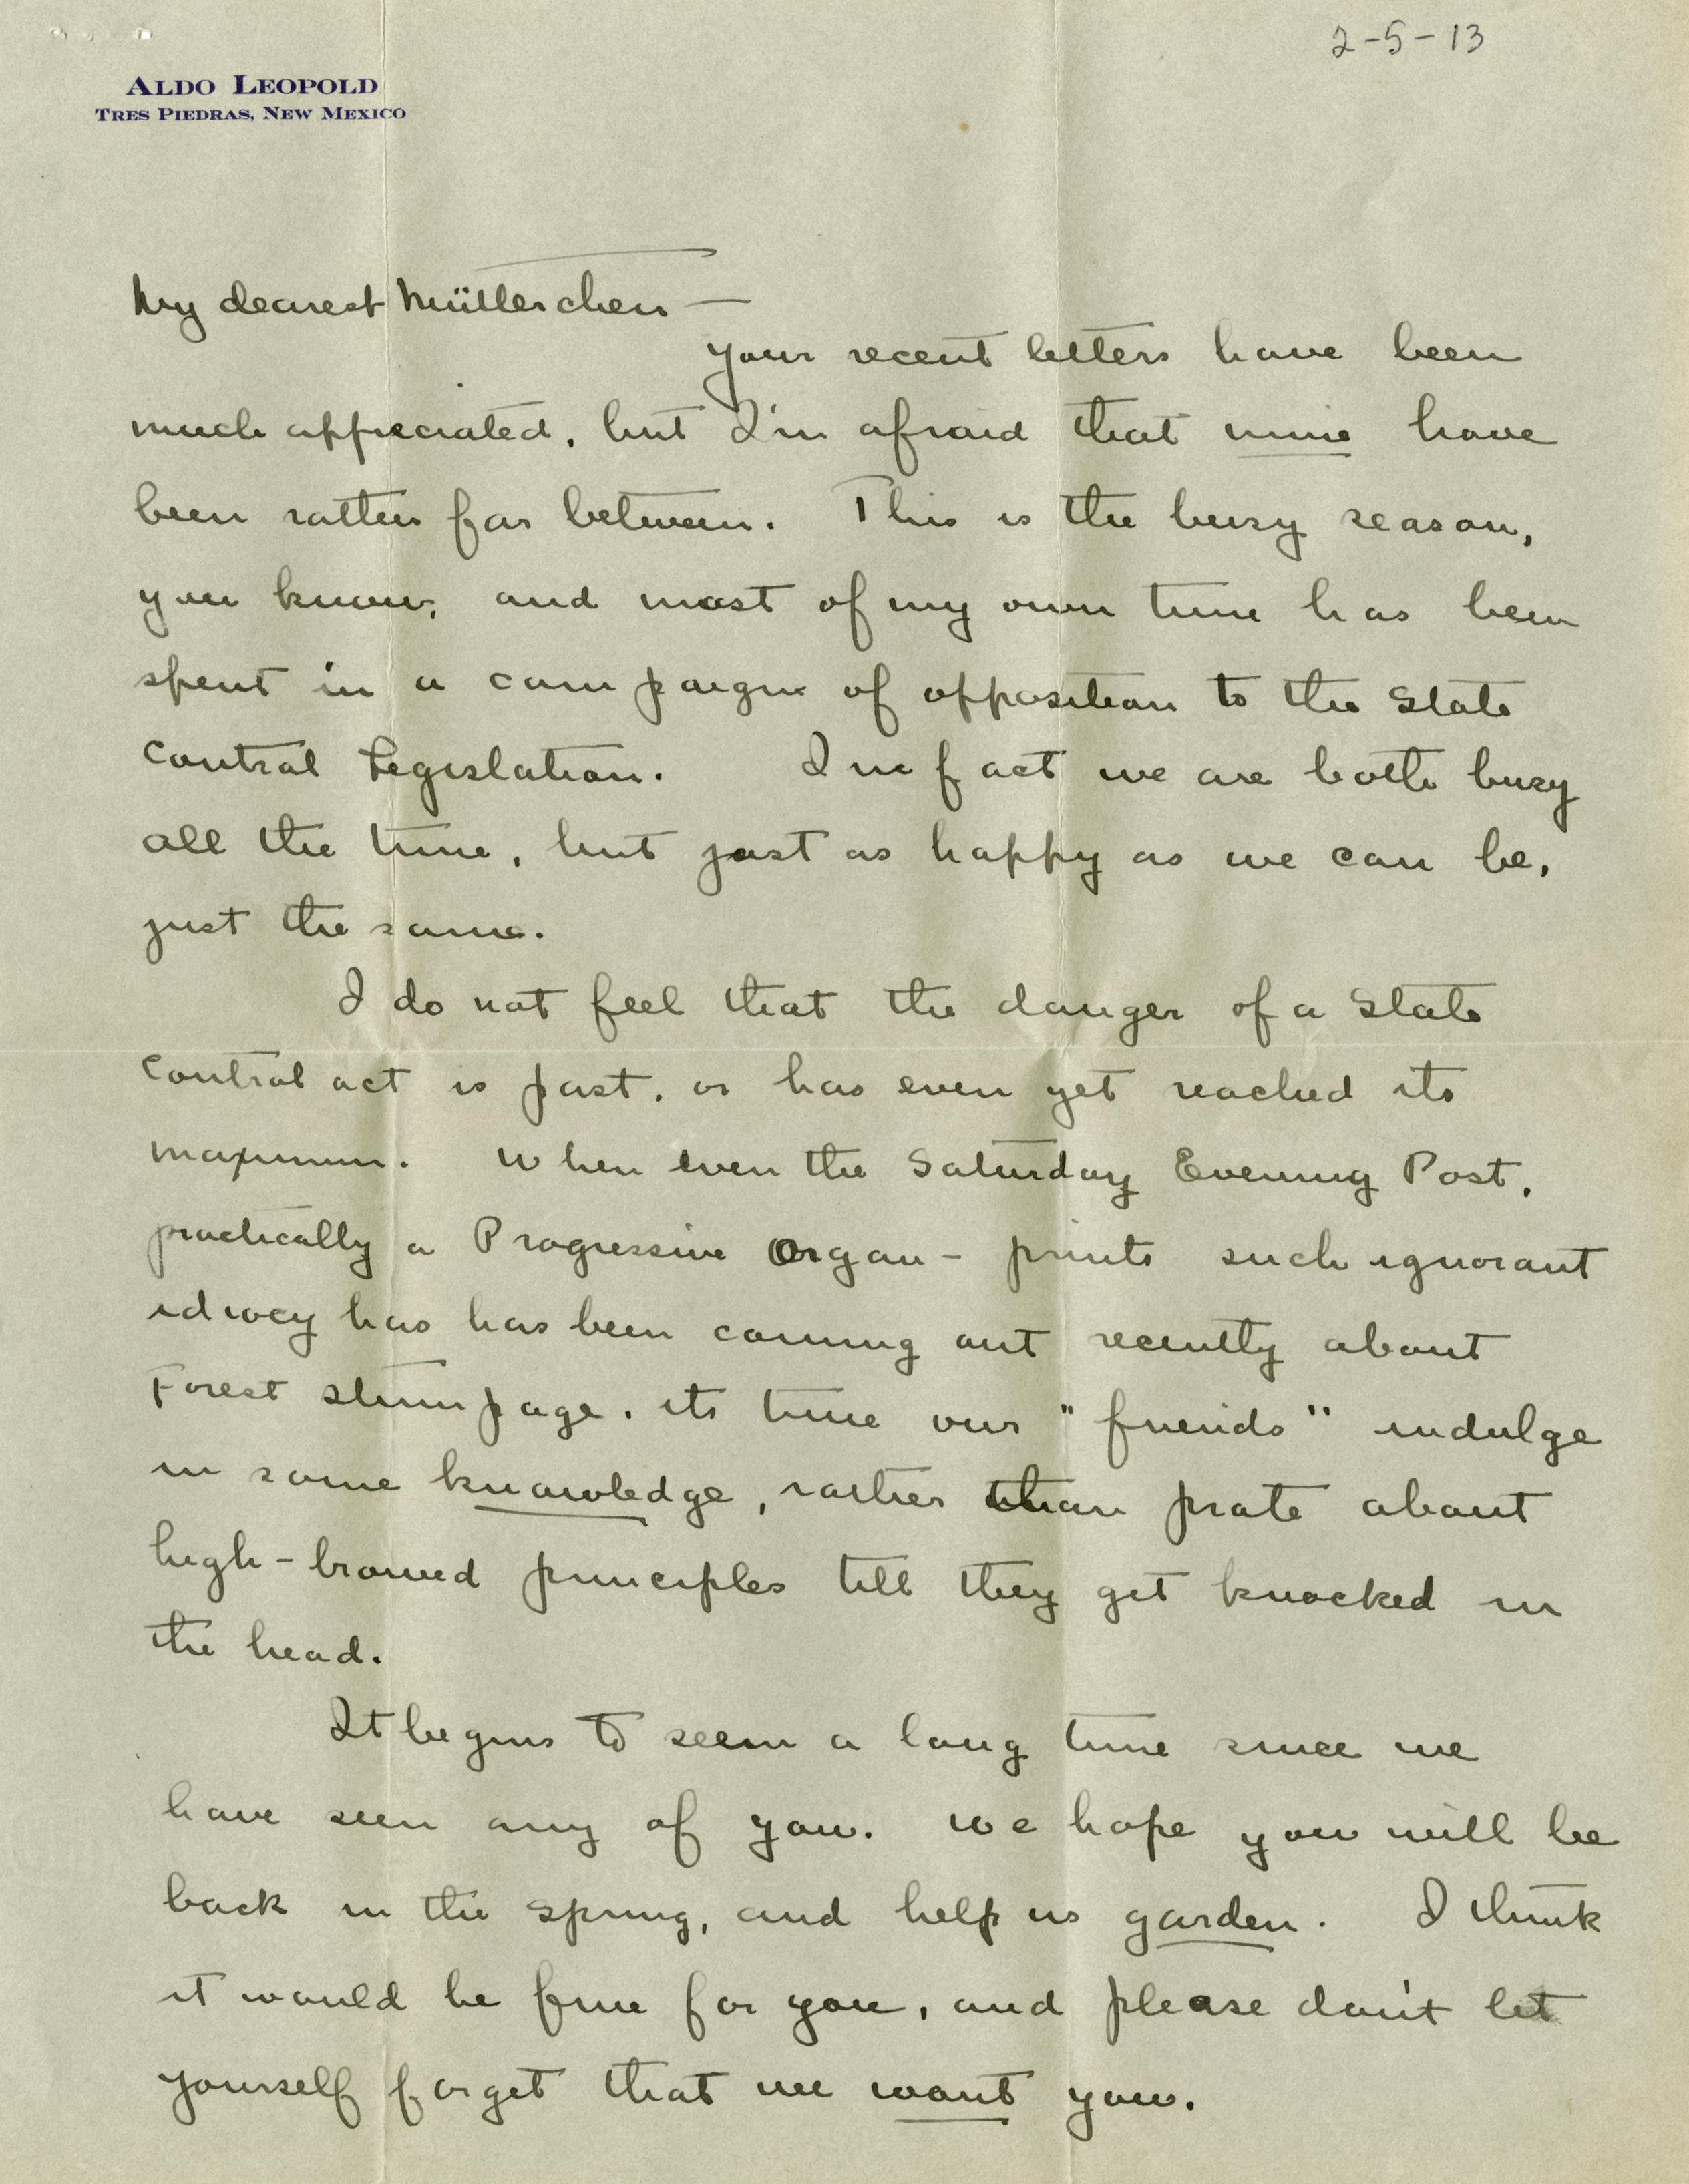 2-5-13
ALDO LEOPOLD
TRES PIEDRAS, NEW MEXICO
My dearest Mütterchen —
Your recent letters have been
much appreciated, but I'm afraid that mine have
been rather far between. This is the busy season,
you know, and most of my own time has been
spent in a campaign of opposition to the State
Control Legislation. In fact we are both busy
all the time, but just as happy as we can be,
just the same.
I do not feel that the danger of a State
Control act is past, or has even yet reached its
maximum. When even the Saturday Evening Post,
practically a Progressive Organ - prints such ignorant
idiocy has has been coming out recently about
Forest stumpage, its time our "friends" indulge
in some knowledge, rather than prate about
high-browed principles till they get knocked in
the head.
It begins to seem a long time since we
have seen any of you. We hope you will be
back in the spring, and help us garden. I think
it would be fine for you, and please don't let
yourself forget that we want you.